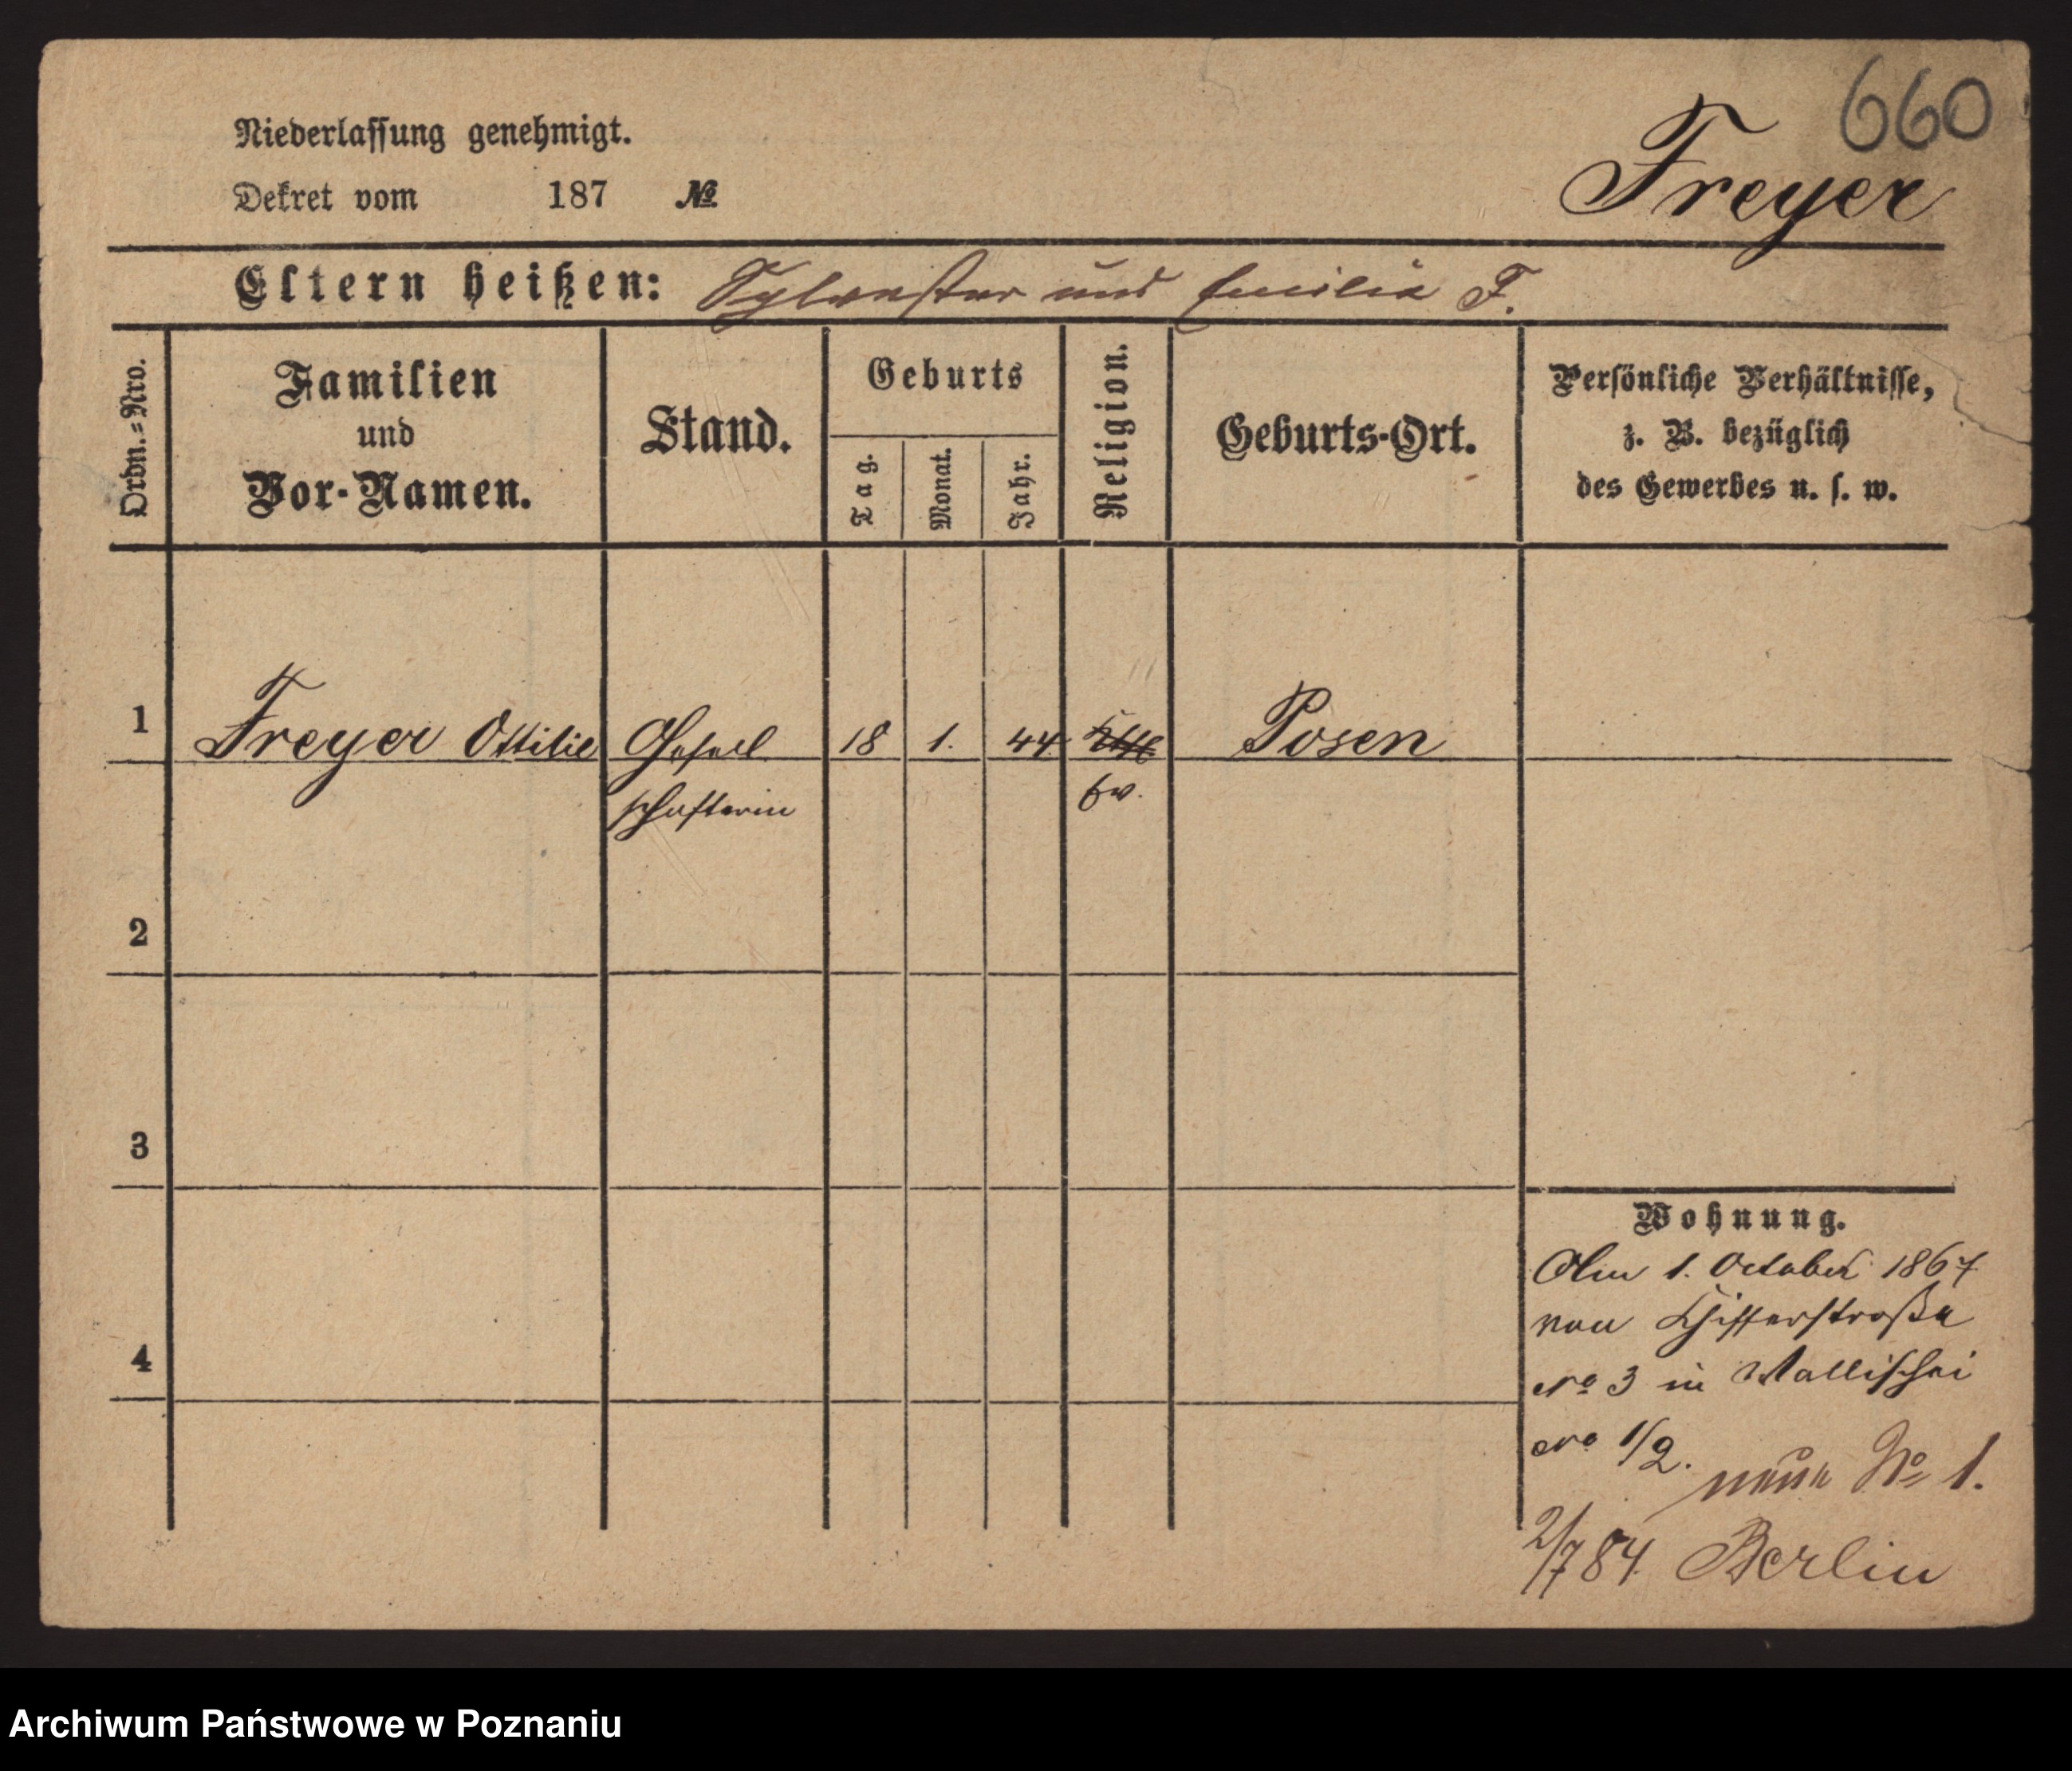 660
Niederlassung genehmigt.
Freyer
Dekret vom 187 №
Eltern heißen: Sylvester und Emilie F.
Ordn.=Nro.
Familien
und
Vor-Namen.
Stand.
Geburts
Tag.
Monat.
Jahr.
Religion.
Geburts-Ort.
Persönliche Verhältnisse,
z. B. bezüglich
des Gewerbes u. s. w.
1 Freyer Ottilie Gesell 18 1. 44 Kth Posen
schafterin Ev.
2
3
4
Wohnung.
Am 1. October 1867
von Schifferstraße
No 3 in Wallischei
No 1/2.
neue No 1.
2/7 84. Berlin
Archiwum Państwowe w Poznaniu